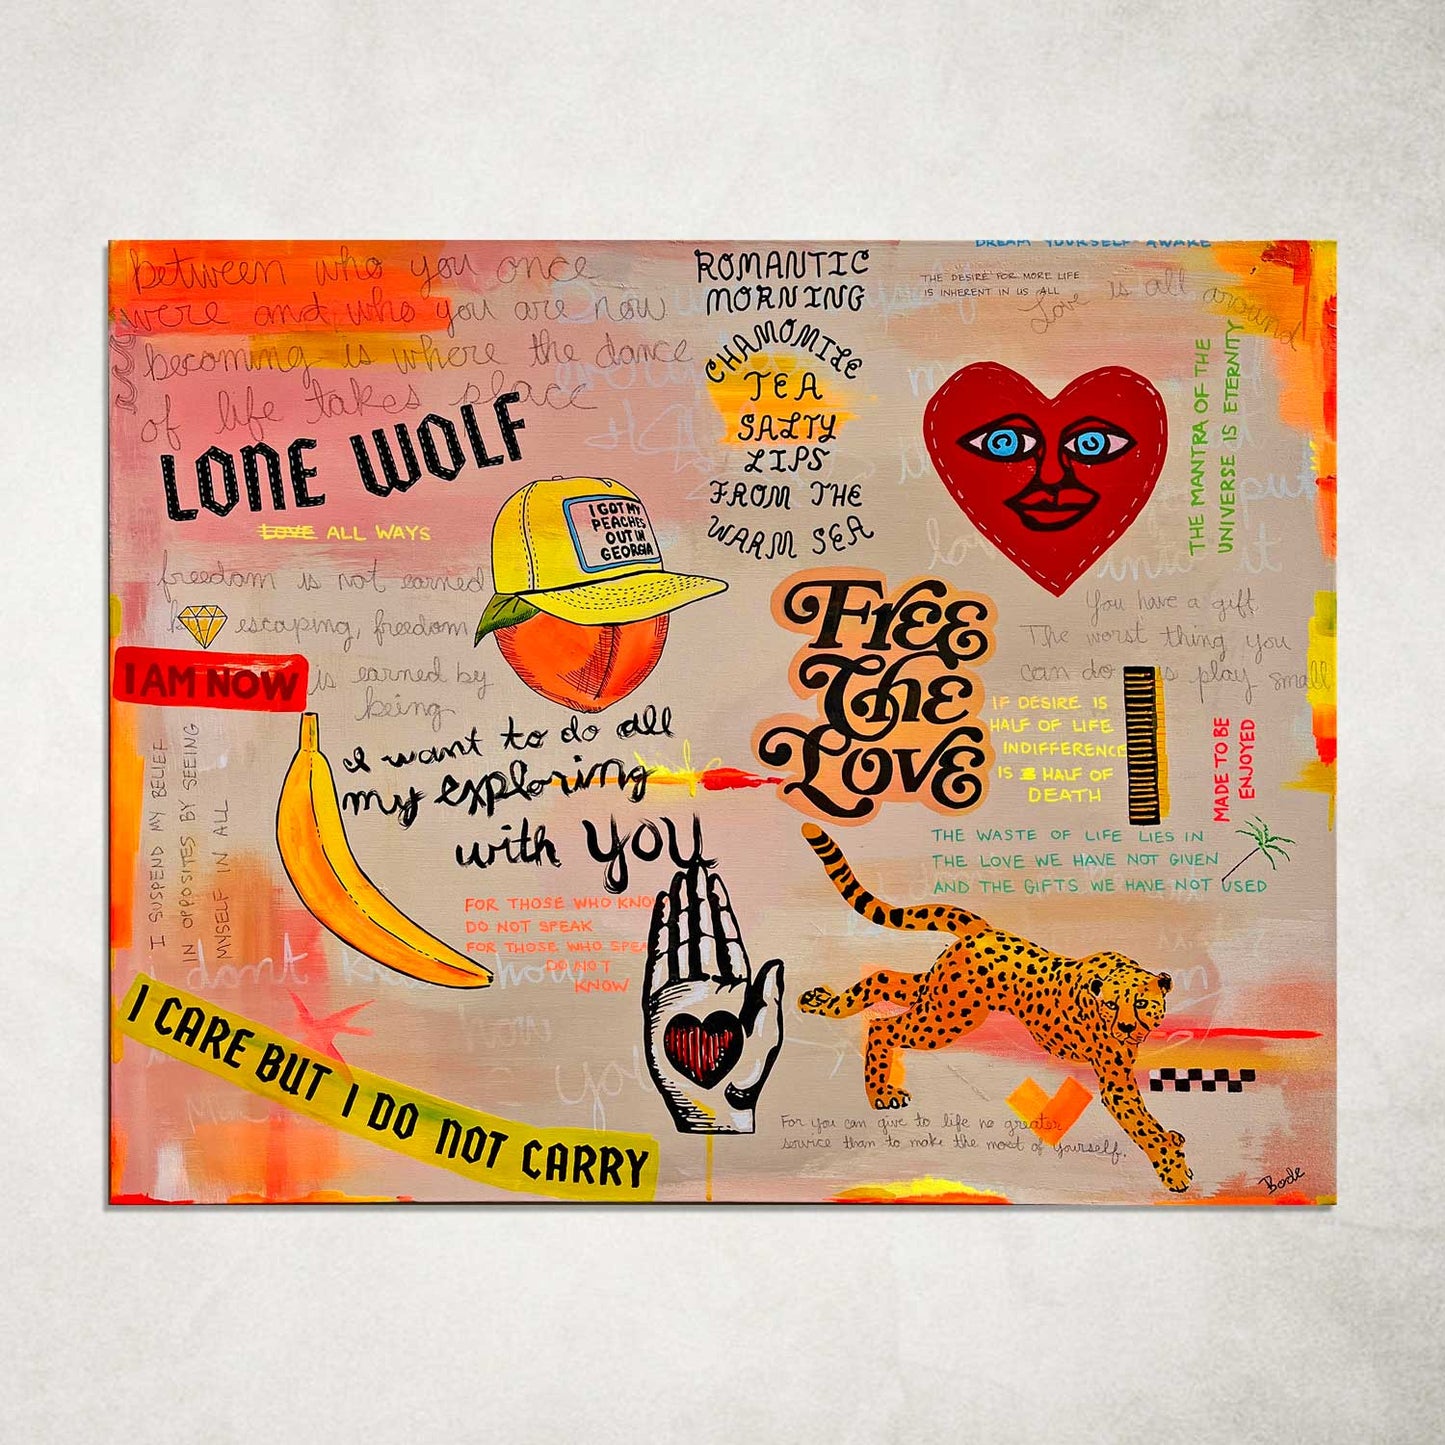 between who you once
were and who you are now
becoming is where the dance
of life takes place
LONE WOLF
LOVE ALL WAYS
freedom is not earned
escaping, freedom
is earned by
being
I AM NOW
I SUSPEND MY BELIEF
IN OPPOSITES BY SEEING
MYSELF IN ALL
I GOT MY
PEACHES
OUT IN
GEORGIA
I want to do all
my exploring
with you
FOR THOSE WHO KNOW
DO NOT SPEAK
FOR THOSE WHO SPEA
DO NOT
KNOW
i dont know how
how
you
I CARE BUT I DO NOT CARRY
ROMANTIC
MORNING
CHAMOMILE
TEA
SALTY
LIPS
FROM THE
WARM SEA
DREAM YOURSELF AWAKE
THE DESIRE FOR MORE LIFE
IS INHERENT IN US ALL
Love is all around
THE MANTRA OF THE
UNIVERSE IS ETERNITY
put
into it
You have a gift
The worst thing you
can do is play small
FREE
The
LOVE
IF DESIRE IS
HALF OF LIFE
INDIFFERENCE
IS HALF OF
DEATH
MADE TO BE
ENJOYED
THE WASTE OF LIFE LIES IN
THE LOVE WE HAVE NOT GIVEN
AND THE GIFTS WE HAVE NOT USED
For you can give to life no greater
service than to make the most of yourself.
Bode